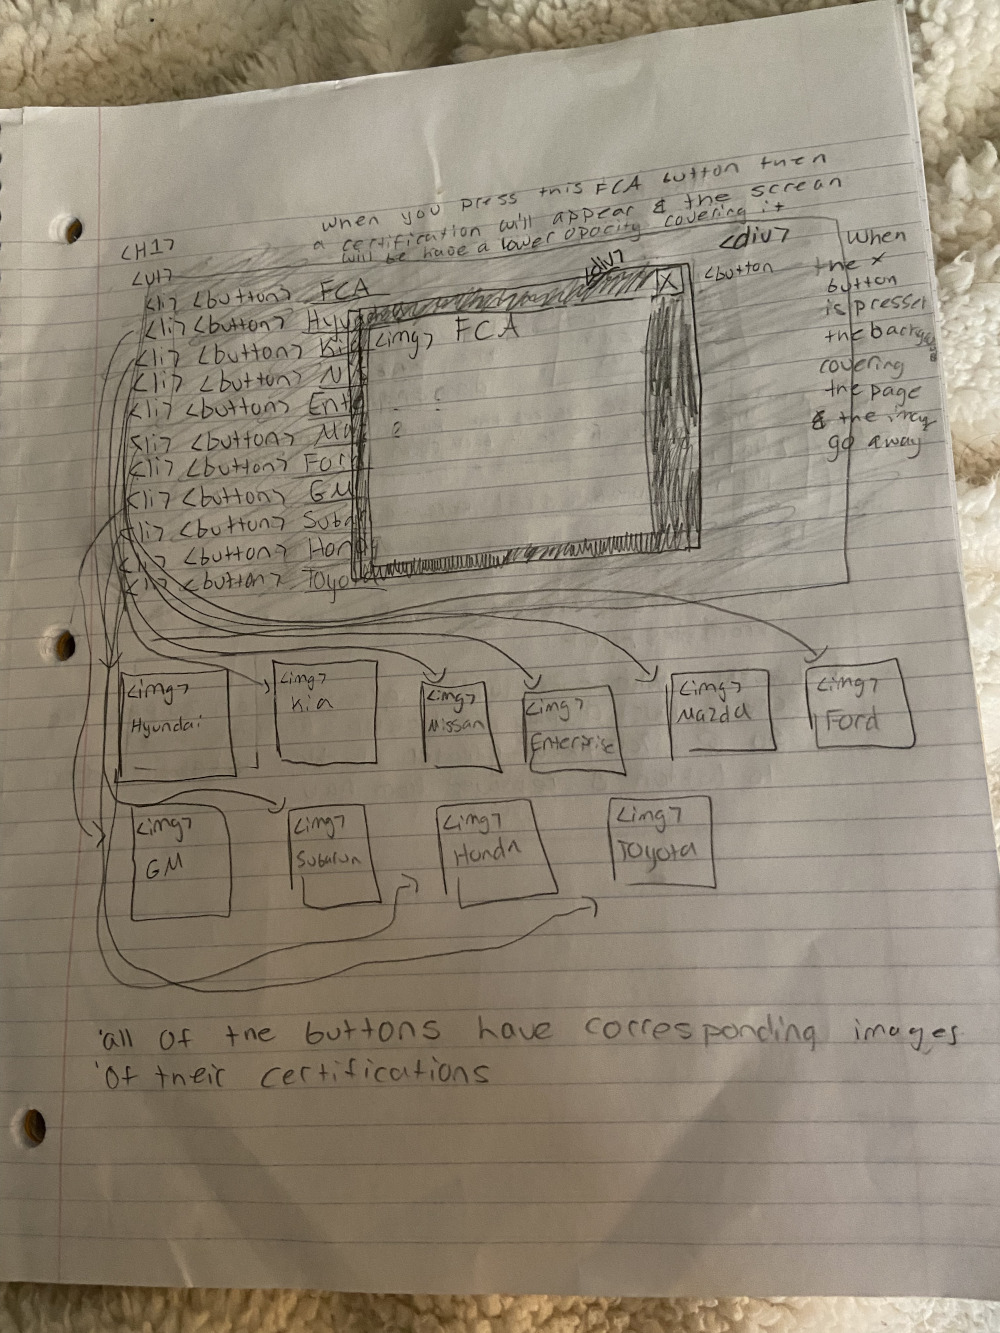 when you press this FCA button then
a certification will appear & the screan
will be have a lower opocity covering it
<H1>
<ul>
<li> <button> FCA
<li> <button> Hyu
<li> <button> Ki
<li> <button> N
<li> <button> Ente
<li> <button> Ma
<li> <button> For
<li> <button> GM
<li> <button> Suba
<li> <button> Hon
<li> <button> Toyo
<div>
<div>
X
<button
<img> FCA
?
When
the x
button
is presser
the backg
covering
the page
& the img
go away
<img>
Hyundai
<img>
Kia
<img>
Nissan
<img>
Enterprise
<img>
Mazda
<img>
Ford
<img>
GM
<img>
Subarun
<img>
Honda
<img>
Toyota
'all of the buttons have corresponding images
'Of their certifications